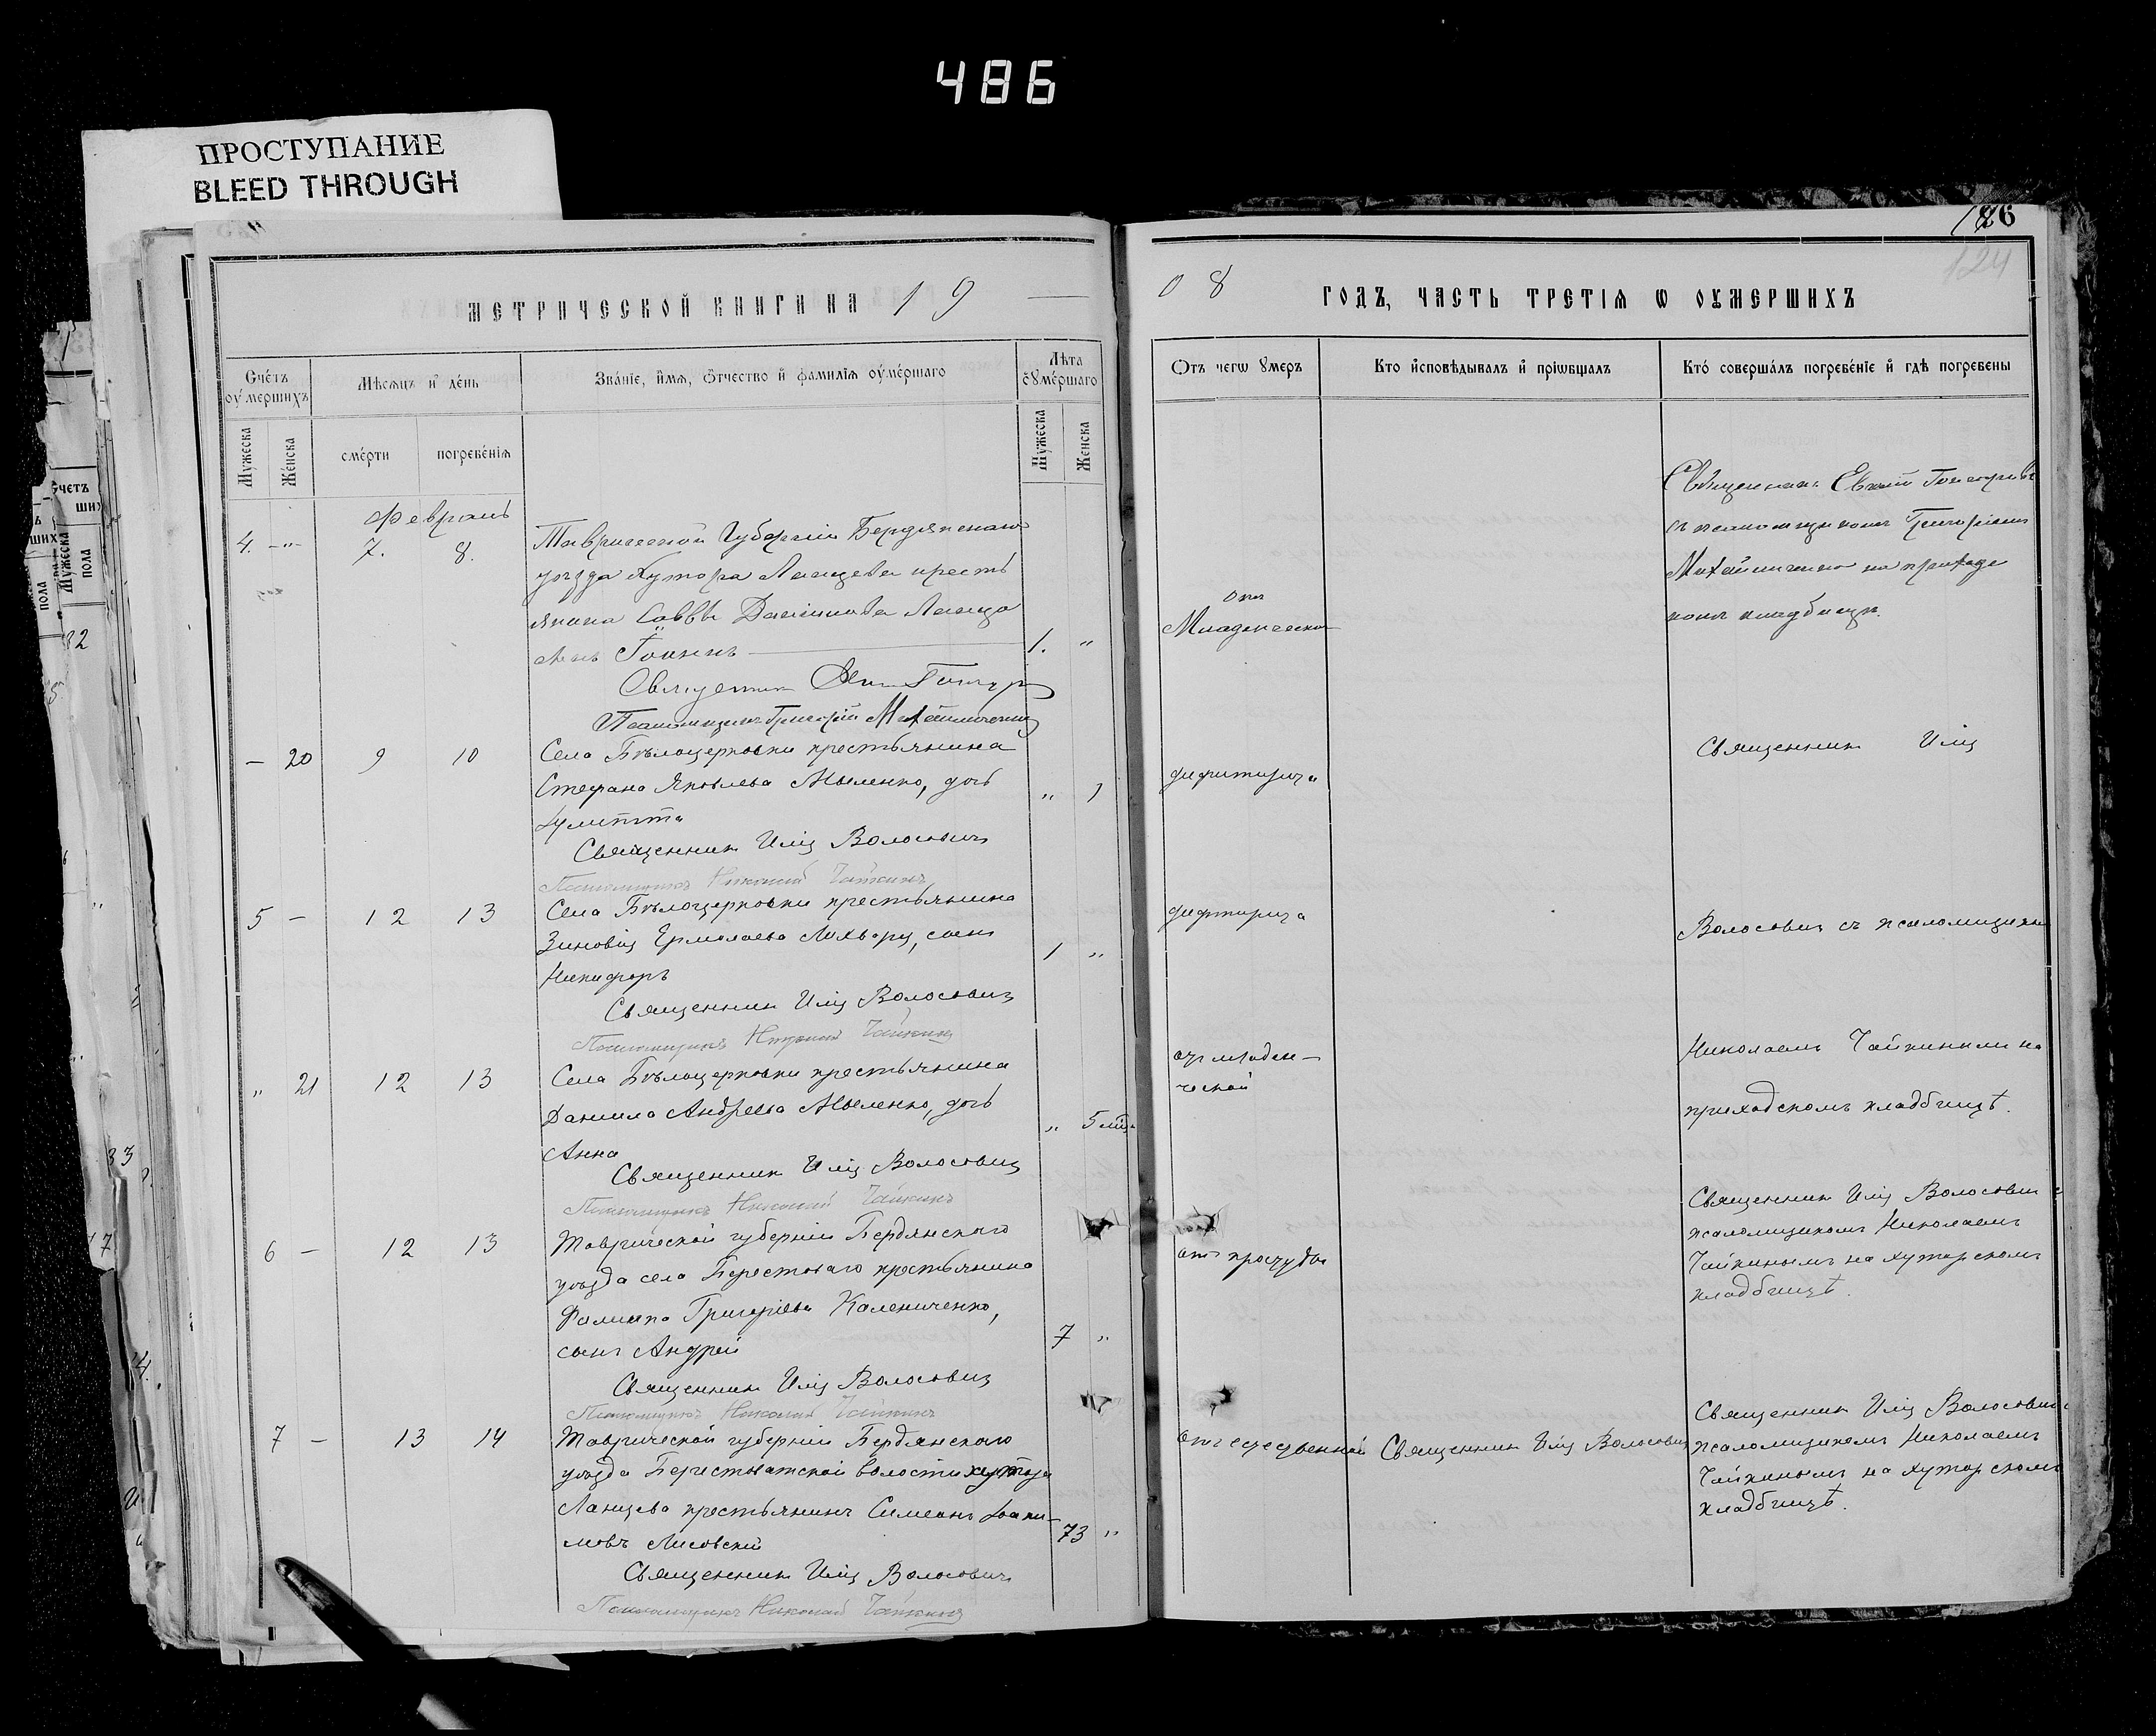 486
ПРОСТУПАНИЕ
BLEED THROUGH
186
124
МЕТРИЧЕСКОЙ КНИГИ НА 19
08 ГОДЪ, ЧАСТЬ ТРЕТІѦ Ѡ ОУМЕРШИХЪ
Счетъ оумершихъ
Мѣсяцъ и день
Званіе, имя, отчество и фамилія оумершаго
Лѣта оумершаго
Мужеска
Женска
смерти
погребенія
Мужеска
Женска
Отъ чегѡ умеръ
Кто исповѣдывалъ и пріѡбщалъ
Кто совершалъ погребеніе и гдѣ погребены
Февраль
4. -"- 7. 8.
Таврической Губерніи Бердянскаго
уѣзда Хутора Ланцева кресть
янина Саввы
сынъ
1. "
Священник
Псаломщикъ Григорій
Младенческой
Священникъ
съ псаломщикомъ Григоріемъ
на приход
ском кладбищѣ.
— 20 9 10
Села Бѣлоцерковки крестьянина
Стефана Яковлева Мыленко, дочь
" 1
Улитта
Священник Илія Волосович
Псаломщикъ Николай Чайкинъ
дифтирита
Священник Илія
5 — 12 13
Села Бѣлоцерковки крестьянина
Зиновія Ермолаева сынъ
1 "
Никифоръ
Священник Илія Волосович
Псаломщикъ Николай Чайкинъ
дифтирита
Волосович съ псаломщиком
" 21 12 13
Села Бѣлоцерковки крестьянина
Даниила Андреева Мыленко, дочь
" 5 мѣс.
Анна
Священник Илія Волосович
Псаломщикъ Николай Чайкинъ
от младен—
ческой
Николаемъ Чайкинымъ на
приходскомъ кладбищѣ.
6 — 12 13
Таврической губерніи Бердянскаго
уѣзда села Берестоваго крестьянина
Григоріева Калениченко,
сынъ Андрей
7 "
Священник Илія Волосович
Псаломщикъ Николай Чайкинъ
отъ простуды
Священник Илія Волосович с
псаломщикомъ Николаемъ
Чайкинымъ на хуторскомъ
кладбищѣ.
7 — 13 14
Таврической губерніи Бердянскаго
уѣзда Берестоватской волости хутора
Ланцева крестьянинъ Симеонъ Іоаки—
мовъ Лисовскій
73 "
Священник Илія Волосович
Псаломщикъ Николай Чайкинъ
от естественной
Священник Илія Волосович
Священник Илія Волосович с
псаломщикомъ Николаемъ
Чайкинымъ на хуторскомъ
кладбищѣ.